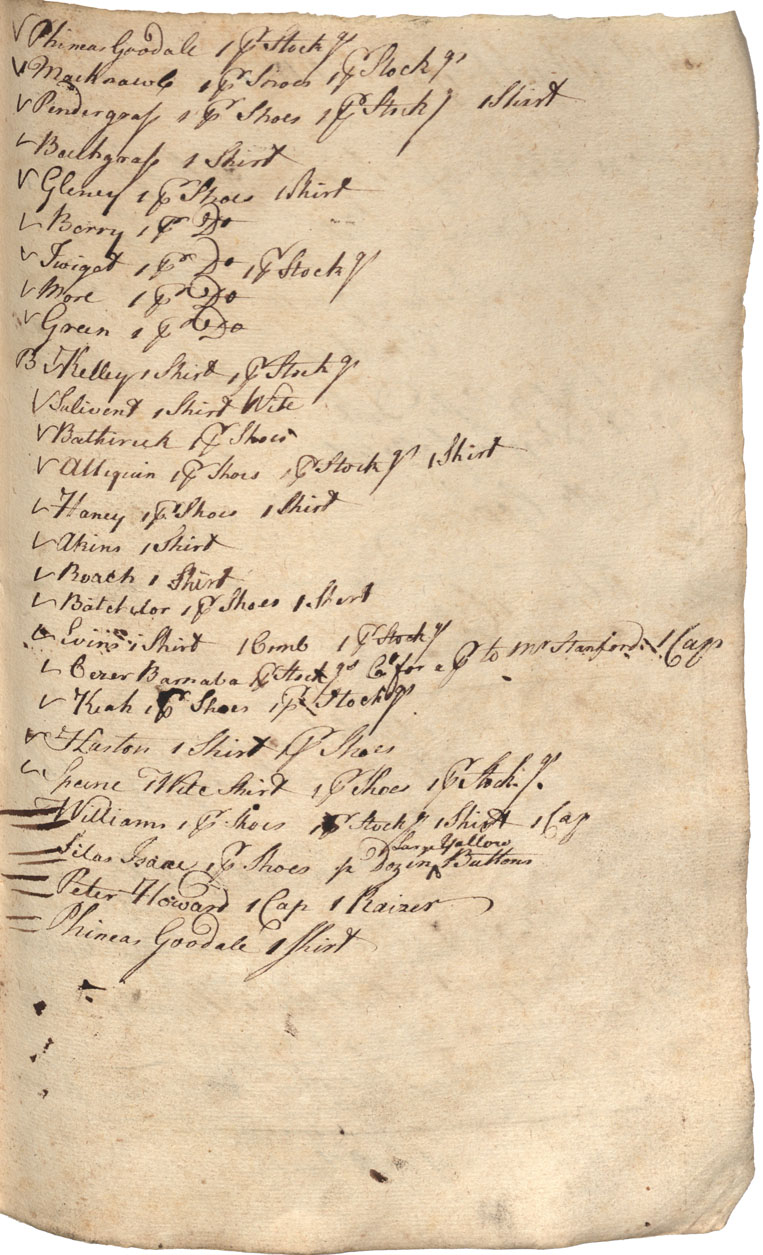 Phineas Goodale 1 pr Stockgs
Macknawl 1 pr Shoes 1 pr Stockgs
Pendergrass 1 pr Shoes 1 pr Stockgs 1 Shirt
Bathgrass 1 Shirt
Gleney 1 pr Shoes 1 Shirt
Berry 1 pr Do
Twiget 1 pr Do 1 pr Stockgs
More 1 pr Do
Green 1 pr Do
B Kelley 1 Shirt 1 pr Stockgs
Sulivent 1 Shirt Wite
Bathrick 1 pr Shoes
Allquin 1 pr Shoes 1 pr Stockgs 1 Shirt
Haney 1 pr Shoes 1 Shirt
Akins 1 Shirt
Roach 1 Shirt
Batchelor 1 pr Shoes 1 Shirt
Evins 1 Shirt 1 Comb 1 pr Stockgs
Cezer Barnaba pr Stockgs for a pr to Mr Stanford 1 Cap
Keah 1 pr Shoes 1 pr Stockgs
Haston 1 Shirt 1 pr Shoes
Greene 1 Wite Shirt 1 pr Shoes 1 pr Stockgs
Williams 1 pr Shoes 1 pr Stockgs 1 Shirt 1 Cap
Silas Isaac 1 pr Shoes Dozin Large Yallow Buttons
Peter Howard 1 Cap 1 Raizer
Phineas Goodale 1 Shirt